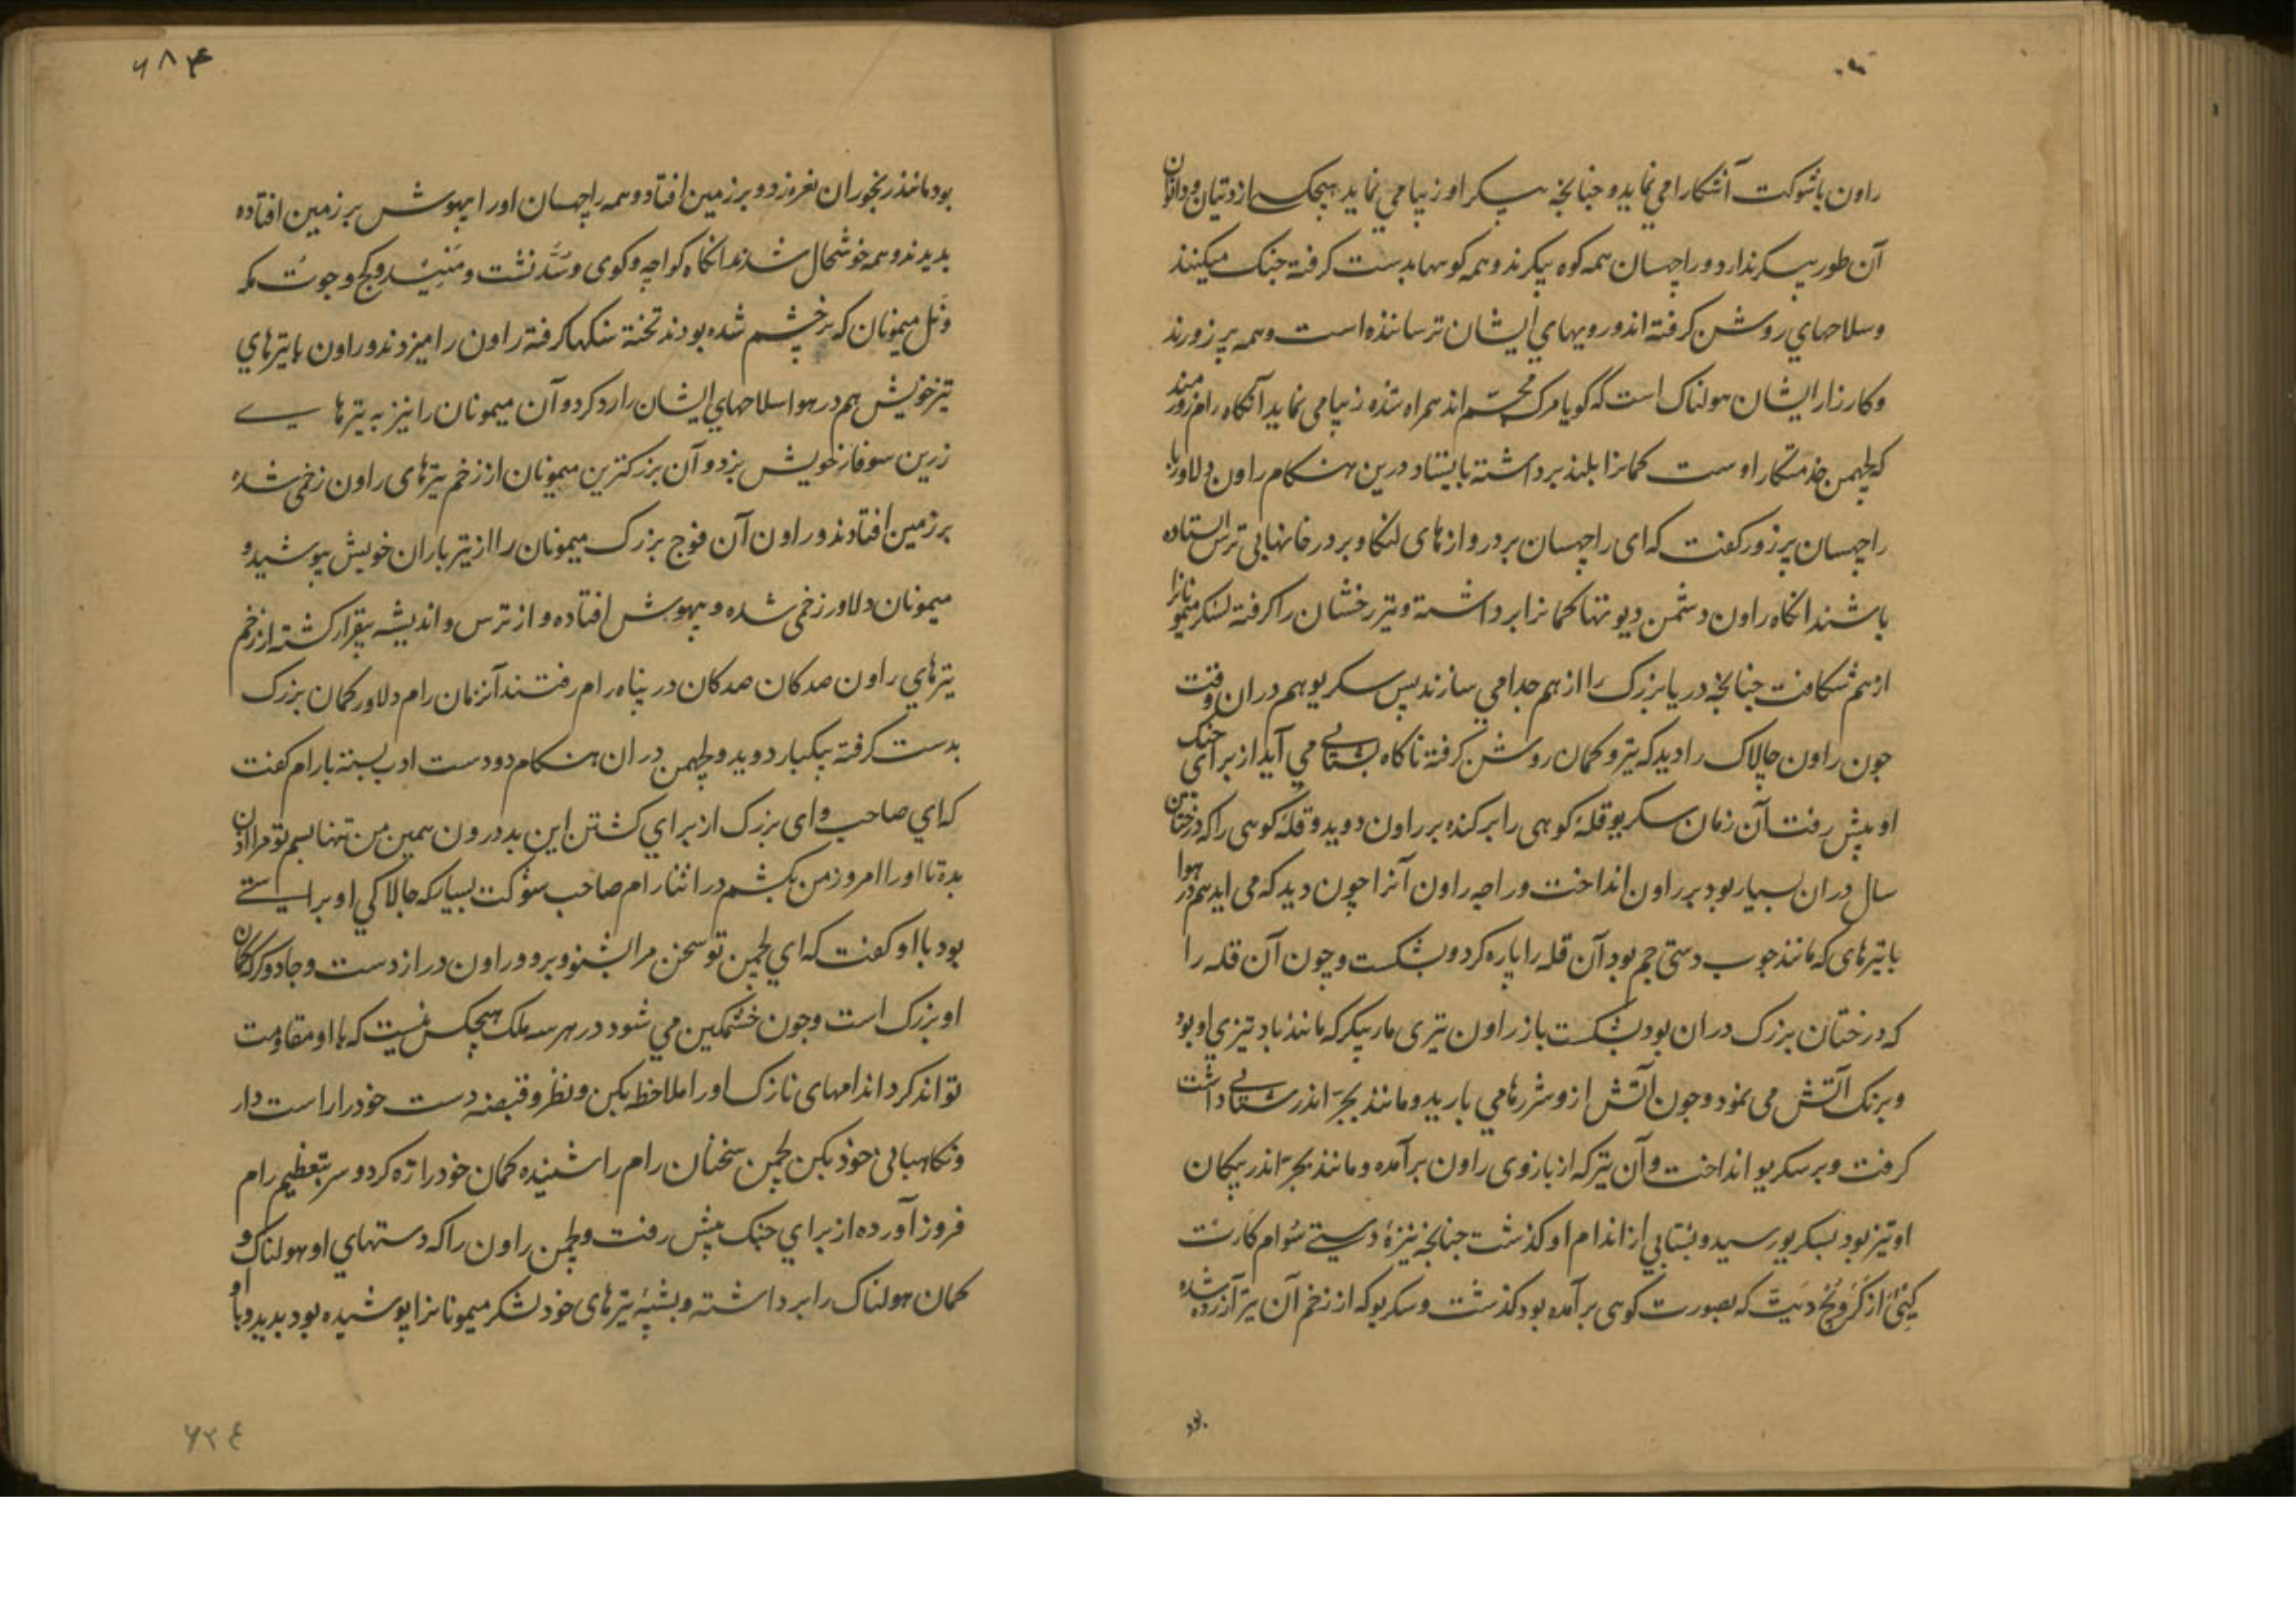 راون باشوکت آشکارا می نماید و چنانچه پیکر او زیبا می نماید هیچکس از دتیان و دانوان
آن طور پیکر ندارد و راچهسان همه کوه پیکرند و همه کوهها بدست کرفته جنک میکنند
و سلاحهای روشن کرفته اند و رویهای ایشان ترساننده است و همه پر زورند
و کارزار ایشان هولناک است که کویا مرک مجسم اند همراه شده زیبا می نماید آنکاه رام زورمند
که لچهمن خدمتکار اوست کمانرا بلند برداشته بایستاد درین هنکام راون دلاور با
راچهسان پر زور کفت که ای راچهسان بر دروازهای لنکا و بر در خانهابی ترس ایستاده
باشند انکاه راون دشمن دیوتها کمانرا برداشته و تیر رخشان را کرفته لشکر میمونانرا
از هم شکافت چنانچه دریا بزرک را از هم جدا می سازند پس سکریو هم در ان وقت
چون راون چالاک را دید که تیر و کمان روشن کرفته ناکاه بشتابی می آید از برای جنک
او پیش رفت آن زمان سکریو قله کوهی را برکنده بر راون دوید و قله کوهی را که درختان
سال در ان بسیار بود بر راون انداخت و راجه راون آنرا چون دید که می اید هم در هوا
با تیرهای که مانند چوب دستی جم بود آن قله را پاره کرد و بشکست و چون آن قله را
که درختان بزرک در ان بود بشکست باز راون تیری مار پیکر که مانند باد تیزی او بود
و برنک آتش می نمود و چون آتش ازو شررها می بارید و مانند بجر اندر شتابی داشت
کرفت و بر سکریو انداخت و آن تیر که از بازوی راون برآمده و مانند بجر اندر پیکان
او تیز بود بسکریو رسید و بشتابی از اندام او کذشت چنانچه نیزه دستی سوام کارت
از کرونچ دیت که بصورت کوهی برآمده بود کذشت و سکریو که از زخم آن تیر آزرده شده
بود
۶۸۴
بود مانند رنجوران نعره زد و بر زمین افتاد و همه راچهسان اورا بیهوش بر زمین افتاده
بدیدند و همه خوشحال شدند انکاه کواچه و کوی و و کج و جوت مکه
و نل میمونان که پر خشم شده بودند تخته سنکها کرفته راون را میزدند و راون با تیرهای
تیز خویش هم در هوا سلاحهای ایشان را رد کرد و آن میمونان را نیز به تیرهای
زرین سوفار خویش بزد و آن بزرکترین میمونان از زخم تیرهای راون زخمی شده
بر زمین افتادند و راون آن فوج بزرک میمونان را از تیر باران خویش بپوشید و
میمونان دلاور زخمی شده و بیهوش افتاده و از ترس و اندیشه بیقرار کشته از زخم
تیرهای راون صدکان صدکان در پناه رام رفتند آنزمان رام دلاور کمان بزرک
بدست کرفته یکبار دوید و لچهمن در ان هنکام دو دست ادب بسته با رام کفت
که ای صاحب و ای بزرک از برای کشتن این بد درون همین من تنها بسم تو مرا اذن
بده تا اورا امروز من بکشم در اثنا رام صاحب شوکت بسیار که چالاکی او براستی
بود با او کفت که ای لچمن تو سخن مرا بشنو و برو و راون دراز دست و جادوکر که کمان
او بزرک است و چون خشمکین می شود در هر سه ملک هیچکس نیست که با او مقاومت
تواند کرد اندامهای نازک اورا ملاحظه بکن و نظر و قبضه دست خود را راست دار
و نکاهبانی خود بکن لچمن سخنان رام را شنیده کمان خود را زه کرد و سر بتعظیم رام
فروز آورده از برای جنک پیش رفت و لچمن راون را که دستهای او هولناک و
کمان هولناک را برداشته و بشیبه تیرهای خود لشکر میمونانرا پوشیده بود بدید و با او
۶۲۴